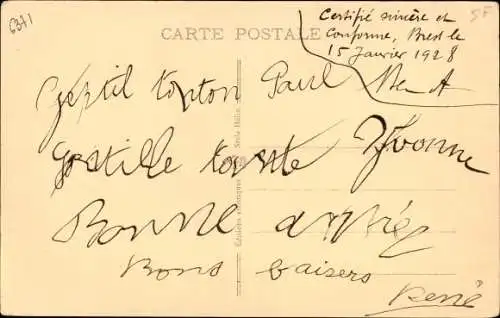 6371
CARTE POSTALE
Certifié sincère et
conforme, Brest le
15 Janvier 1928
Gentil tonton Paul
Gentille tante Yvonne
Bonne année
Bons baisers
René